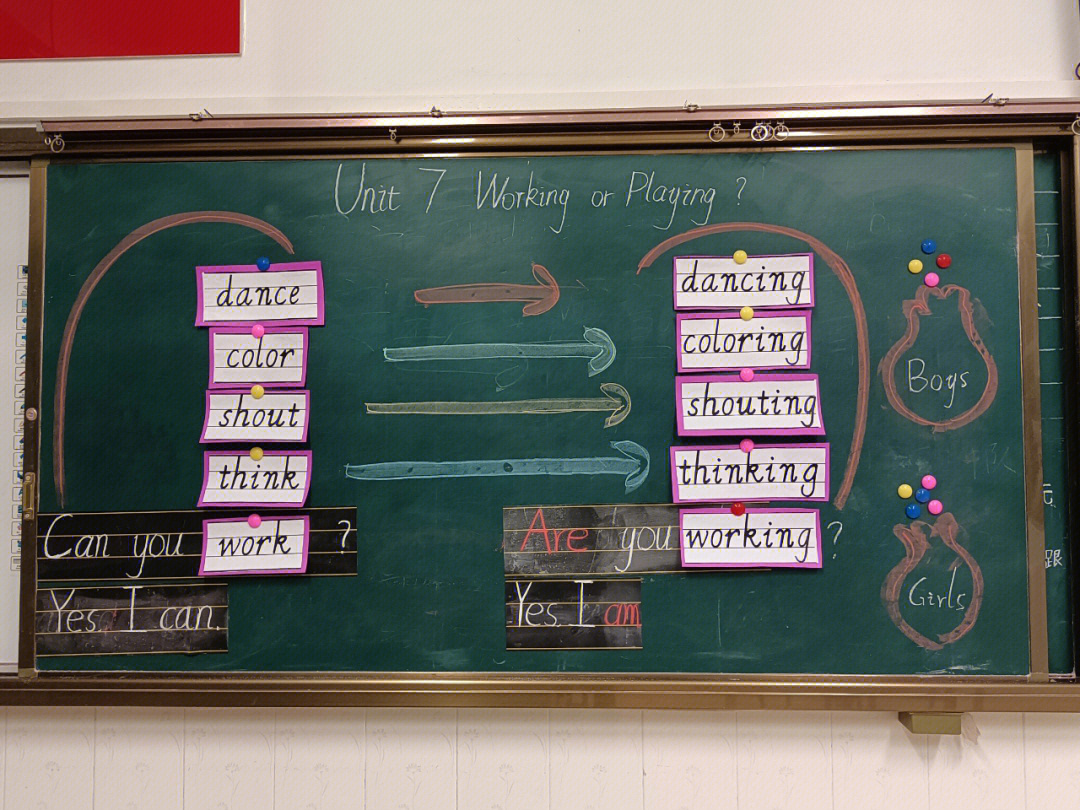 Unit 7 Working or Playing ?
dance
color
shout
think
Can you work ?
Yes, I can.
dancing
coloring
shouting
thinking
Are you working ?
Yes, I am
Boys
Girls
跟